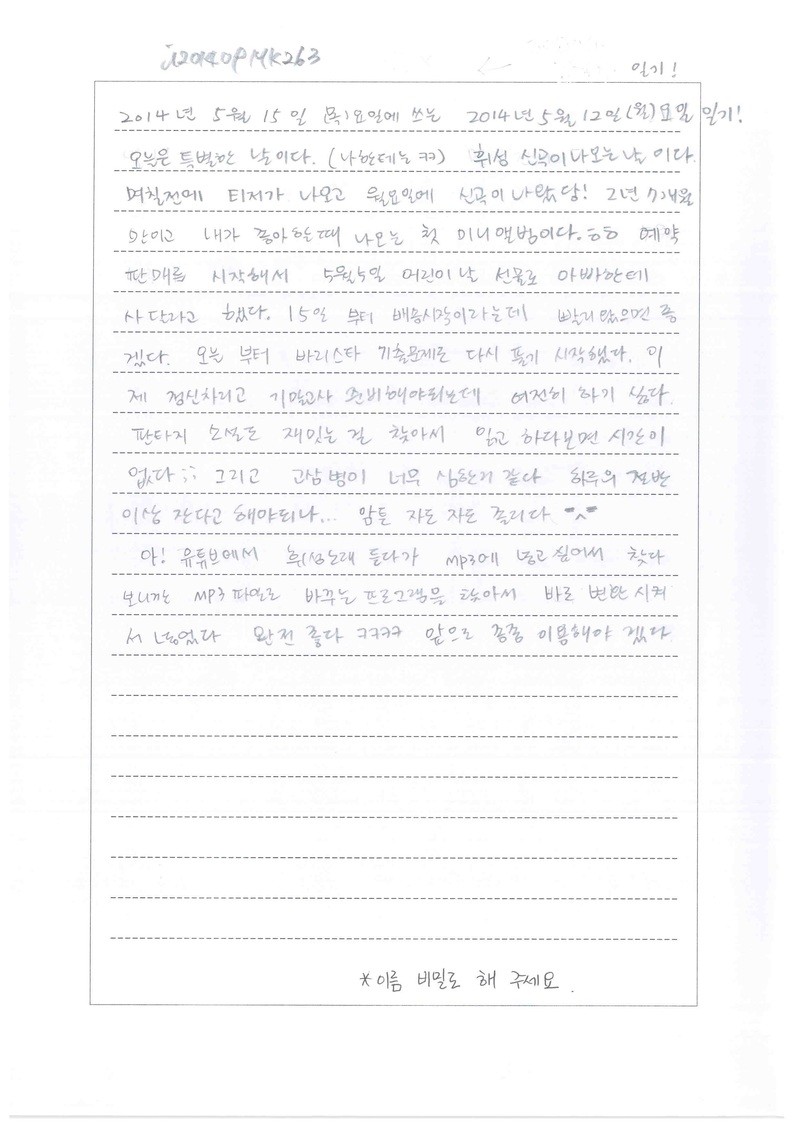 j12014OPMK263
일기!
2014년 5월 15일 (목)요일에 쓰는 2014년 5월 12일 (월)요일 일기!
오늘은 특별한 날이다. (나한테는 ㅋㅋ) 휘성 신곡이 나오는 날 이다.
며칠전에 티저가 나오고 월요일에 신곡이 나왔당! 2년 7개월
만이고 내가 좋아할때 나오는 첫 미니앨범이다.ㅎㅎ 예약
판매를 시작해서 5월5일 어린이날 선물로 아빠한테
사 단라고 했다. 15일 부터 배송시작이라는데 빨리 왔으면 좋
겠다. 오늘 부터 바리스타 기출문제를 다시 풀기 시작했다. 이
제 정신차리고 기말고사 준비해야되는데 여전히 하기 싫다.
판타지 소설도 재밌는걸 찾아서 읽고 하다보면 시간이
없다;; 그리고 고삼병이 너무 심한거 같다 하루의 절반
이상 잔다고 해야되나... 암튼 자도 자도 졸리다
아! 유튜브에서 휘성노래 듣다가 MP3에 넣고싶어서 찾다
보니까는 MP3 파일로 바꾸는 프로그램을 찾아서 바로 변환 시켜
서 넣었다 완전 좋다 ㅋㅋㅋㅋ 앞으로 종종 이용해야 겠다
*이름 비밀로 해 주세요.